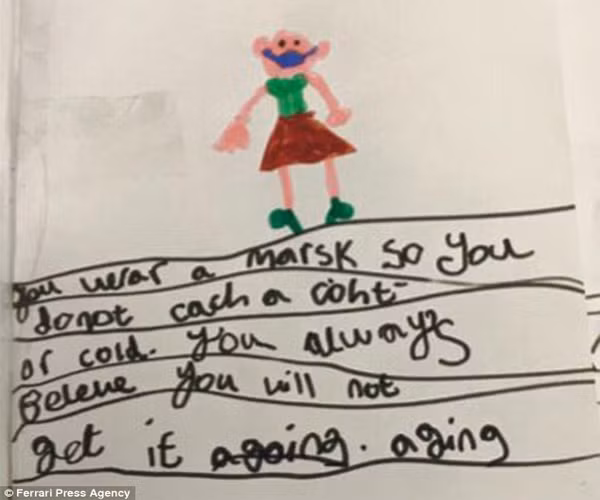 You werar a marsk so you
donot cach a coht
or cold. You always
Beleve you will not
get it agoing. aging
© Ferrari Press Agency